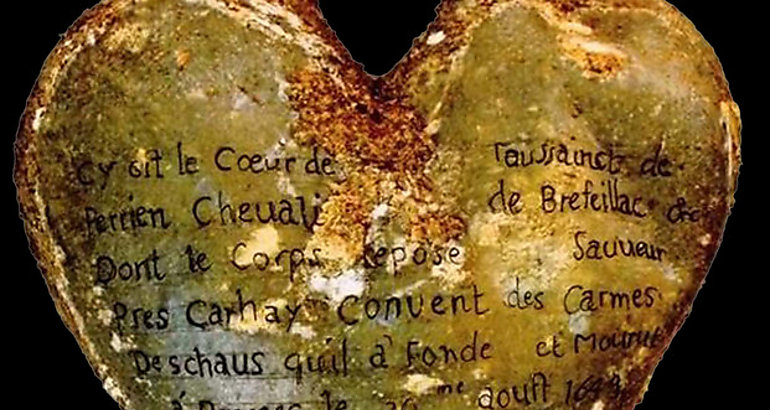 cy git le Cœur de Toussainct de
Perrien Cheuali de Brefeillac &c
Dont le Corps Repose Sauueur
pres Carhay Convent des Carmes
Deschaus quil a Fonde et Mourut
á le me aoust